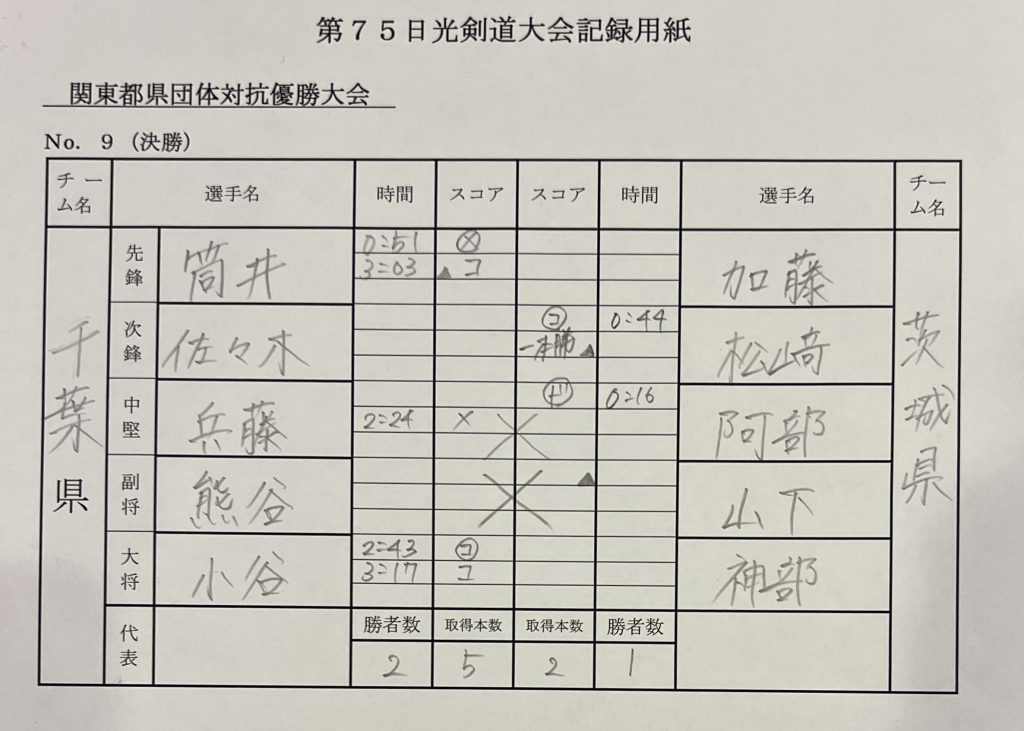 第７５日光剣道大会記録用紙
関東都県団体対抗優勝大会
No. 9（決勝）
チーム名 選手名 時間 スコア スコア 時間 選手名 チーム名
千葉県 茨城県
先鋒 筒井 0:51 ㋱ 加藤
3:03 ▲ コ
次鋒 佐々木 ㋙ 0:44 松﨑
一本勝 ▲
中堅 兵藤 ㋣ 0:16 阿部
2:24 メ ×
副将 熊谷 × ▲ 山下
大将 小谷 2:43 ㋙ 神部
3:17 コ
代表 勝者数 取得本数 取得本数 勝者数
2 5 2 1